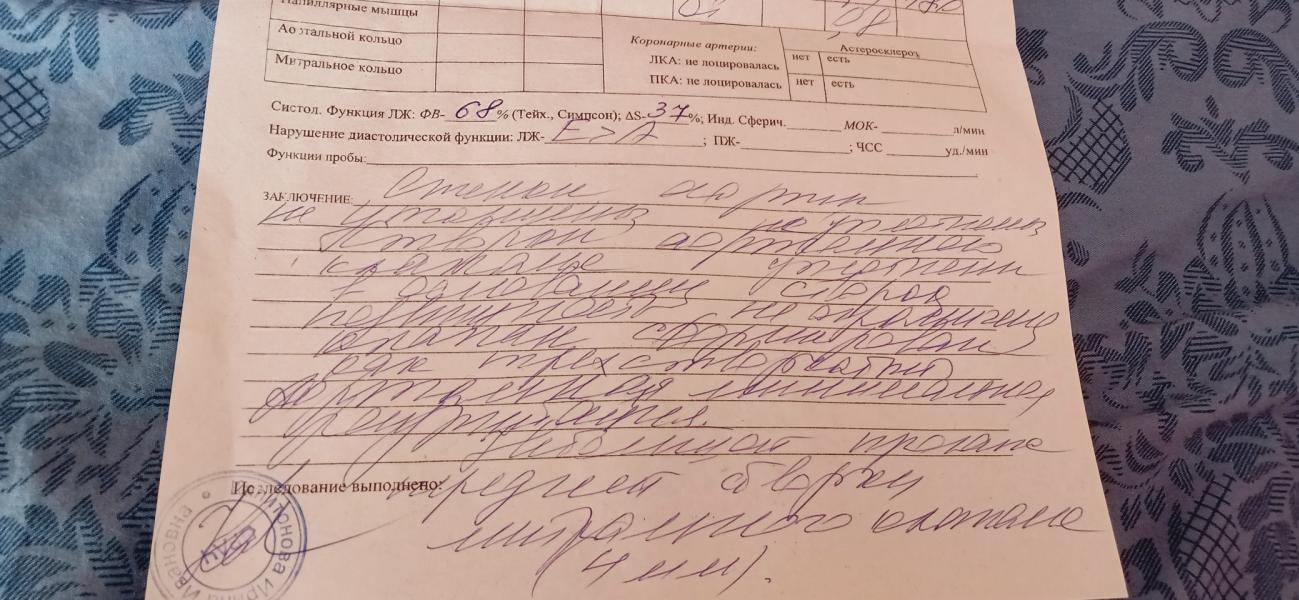 Папиллярные мышцы
Аортальной кольцо
Митральное кольцо
Коронарные артерии:
ЛКА: не лоцировалась
ПКА: не лоцировалась
Астеросклероз
нет есть
нет есть
Систол. Функция ЛЖ: ФВ- 68 % (Тейх., Симпсон); ΔS- 37 %; Инд. Сферич. МОК- л/мин
Нарушение диастолической функции: ЛЖ- E>A ; ПЖ- ; ЧСС уд./мин
Функции пробы:
ЗАКЛЮЧЕНИЕ: Стенки аорты
не утолщены не уплотнены
Створки аортального
клапана уплотнены
в основании створок
подвижность не ограничена
клапан сформирован
как трехстворчатый
Аортальная минимальная
регургитация.
Небольшой пролапс
Исследование выполнено: передней створки
митрального клапана
(4 мм).